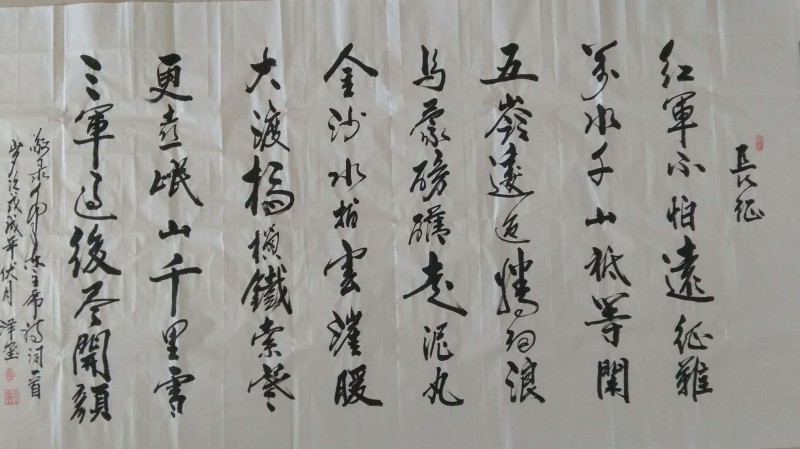 長征
紅軍不怕遠征難
萬水千山祗等閑
五嶺逶迤騰細浪
烏蒙磅礴走泥丸
金沙水拍雲崖暖
大渡橋横鐵索寒
更喜岷山千里雪
三軍過後尽開顔
敬录毛泽东主席詩詞一首
岁次戊戌年伏月 澤